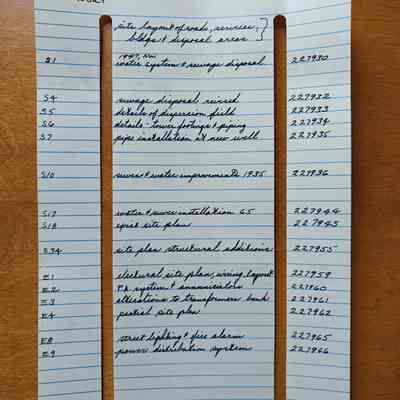 site layout of roads, services,
bldgs & disposal areas
S1 water system & sewage disposal 227930
S4 sewage disposal revised 227932
S5 details of dispersion field 227933
S6 details - tower footings & piping 227934
S7 pipe installation at new well 227935
S10 sewer & water improvements 1935 227936
S17 water & sewer installation 65 227944
S18 epsel site plan 227945
S34 site plan structural additions 227955
E1 electrical site plan, wiring, layout 227959
E2 P.A system & annunciators 227960
E3 alterations to transformer bank 227961
E4 partial site plan 227962
E8 street lighting & fire alarm 227965
E9 power distribution system 227966